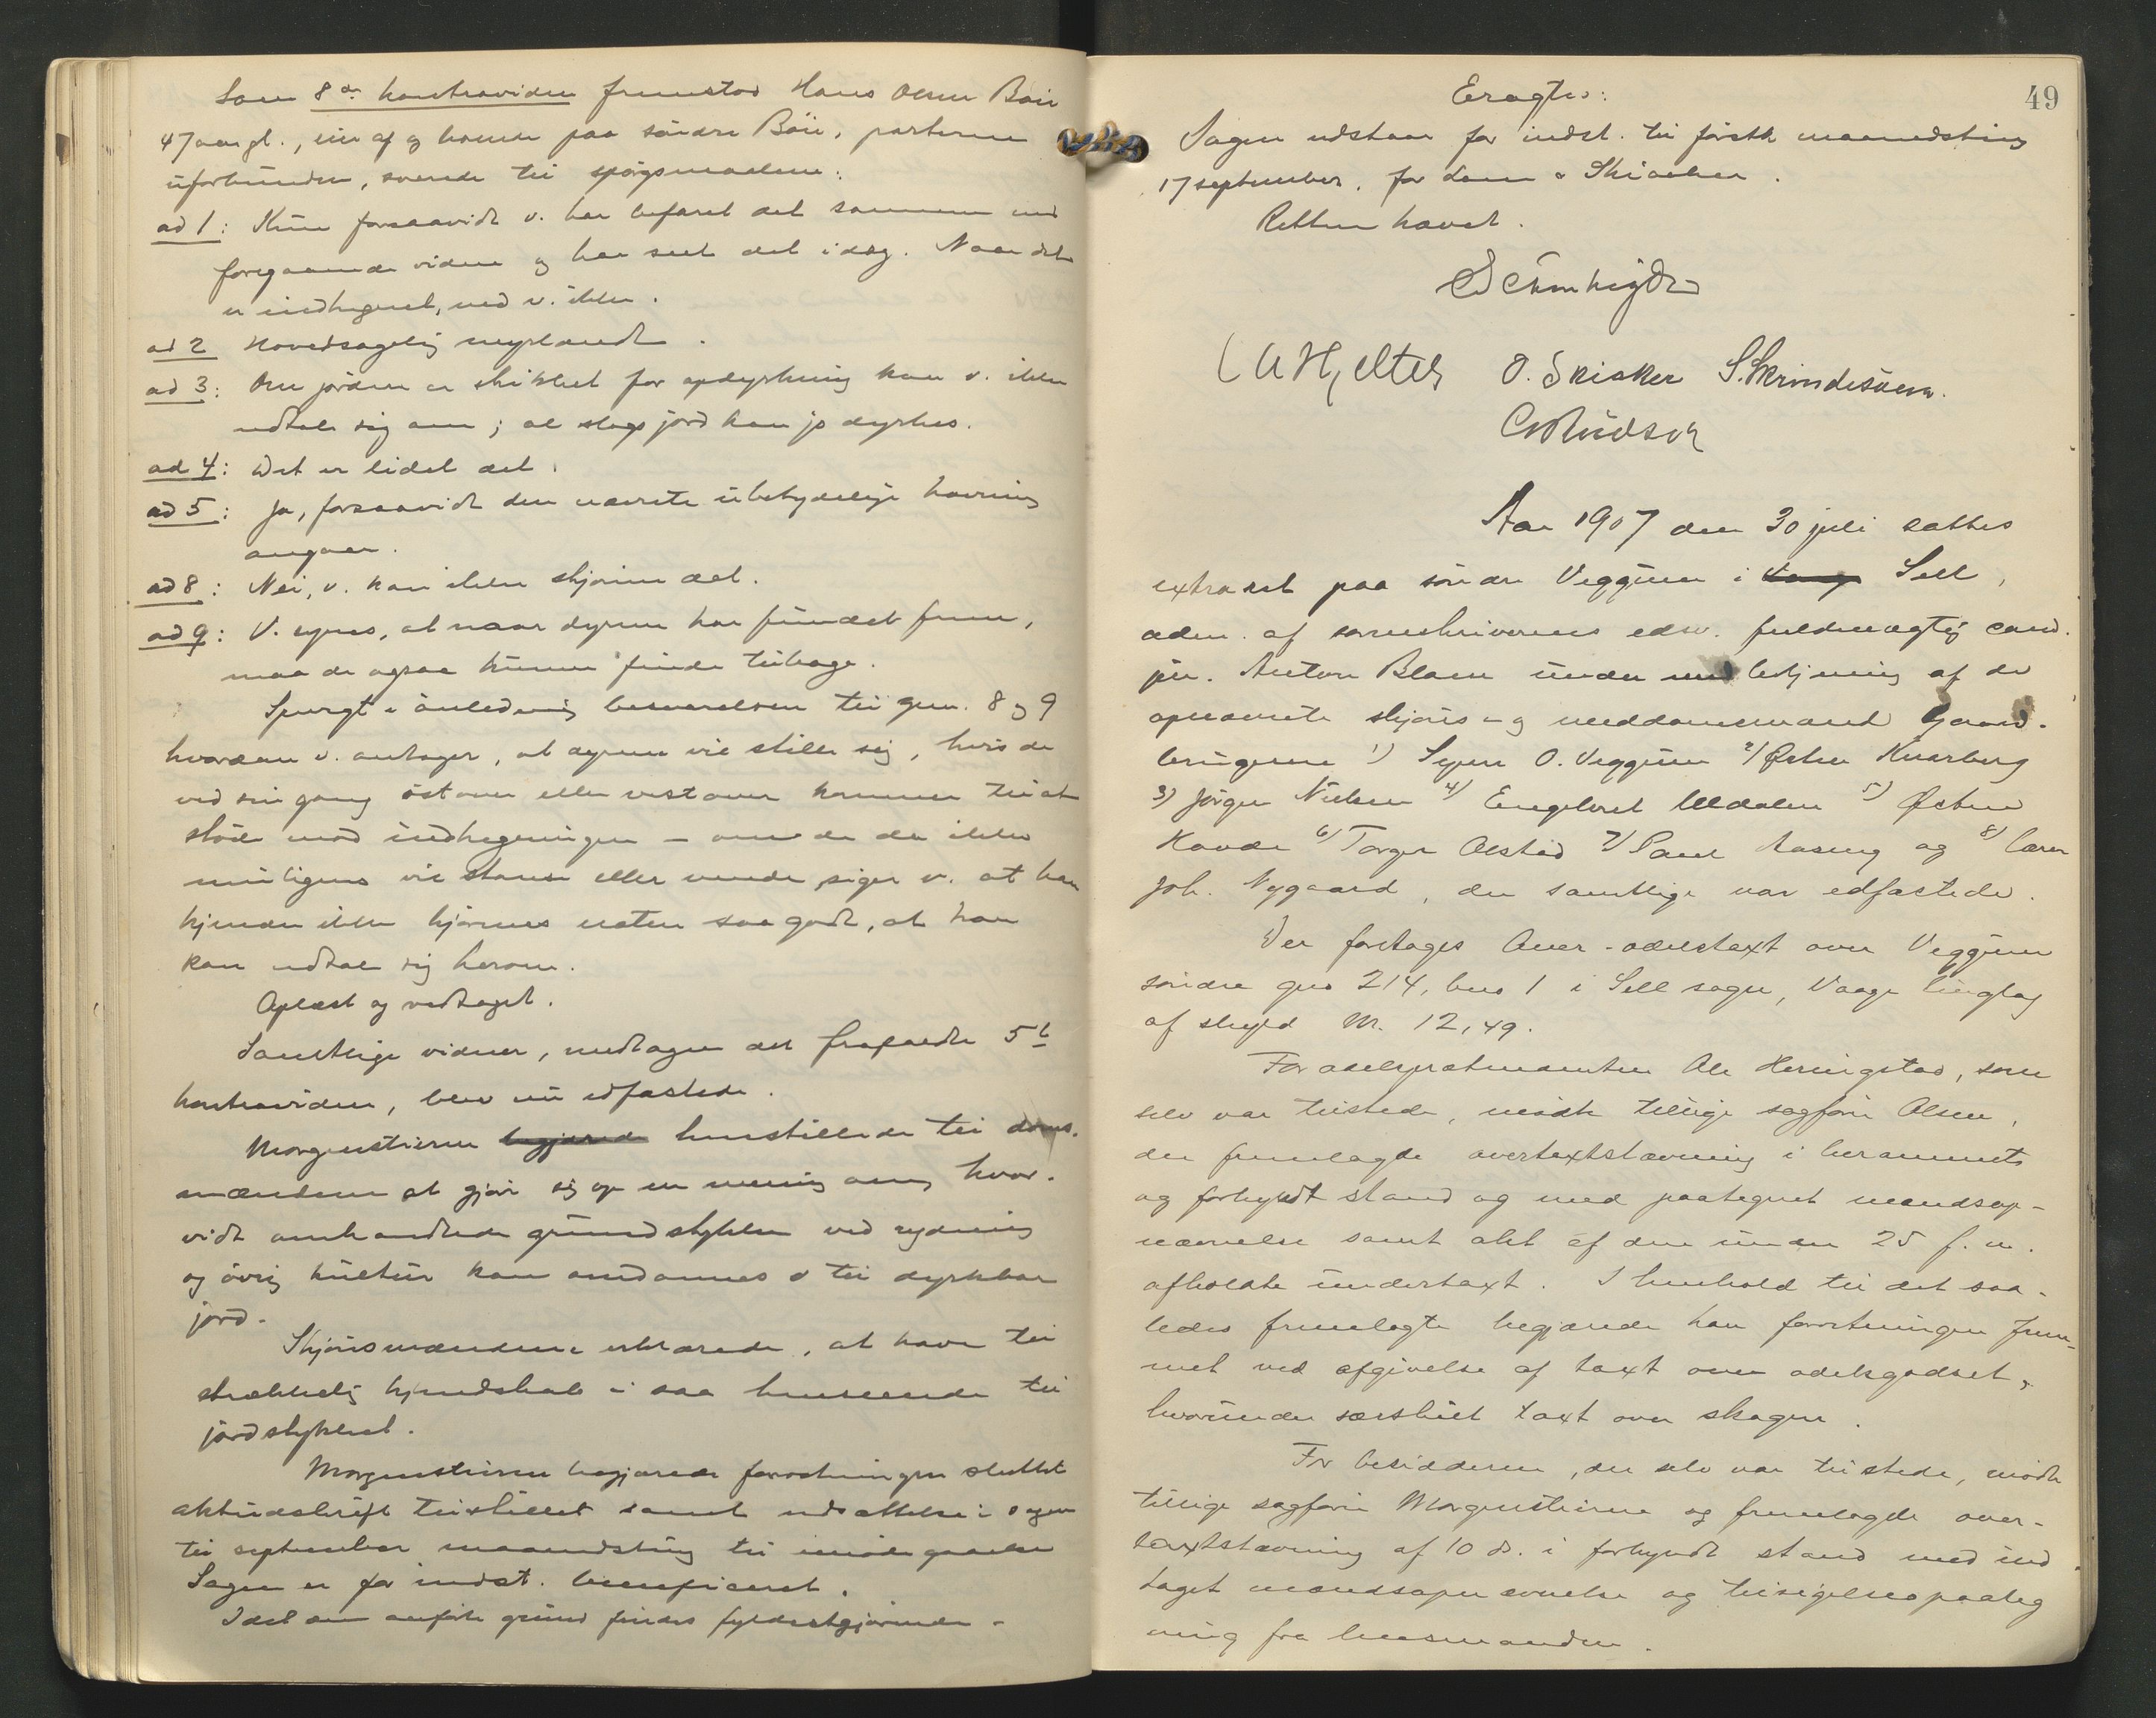 Som 8de kontravidne fremstod Hans Olsen Böie
47 aar gl., eier af og boende paa söndre Böie, parterne
uforbunden, svarede til spörgsmaalene:
ad 1: Kun forsaavidt v. har befaret det sammen med
foregaaende vidne og har seet det idag. Naar det
er indhegnet, ved v. ikke.
ad 2 Hovedsagelig myrlændt.
ad 3: Om jorden er skikket for opdyrkning kan v. ikke
udtale sig om; al slags jord kan jo dyrkes.
ad 4: Det er lidet det.
ad 5: Ja, forsaavidt den nævnte ubetydelige havning
angaar.
ad 8: Nei, v. kan ikke skjönne det.
ad 9: V. synes, at naar dyrene har fundet frem,
maa de ogsaa kunne finde tilbage.
Spurgt i anledning besvarelsen til qvm. 8 og 9
hvordan v. antager, at dyrene vil stille sig, hvis de
ved sin gang östover eller vestover kommer til at
stöde mod indhegningen – om de da ikke
muligens vil stanse eller vende, siger v. at han
kjender ikke hjörnes naten saa godt, at han
kan udtale sig herom.
Oplæst og vedtaget.
Samtlige vidner, undtagen det frafaldte 5te
kontravidne, blev nu edfæstede.
Morgenstierne begjærede henstillede til doms-
mændene at gjöre sig op en mening om, hvor-
vidt omhandlede grundstykke ved rydning
og övrig kultur kan omdannes til dyrkbar
jord.
Skjönsmændene erklærede, at have til
strækkelig kjendskab i saa henseende til
jordstykket.
Morgenstierne begjærede forretningen sluttet
aktudskrift tilstillet samt udsættelse i sagen
til september maanedsting til imödegaaelse
Sagen er for indst. beneficeret.
Idet den anförte grund findes fyldestgjörende –
49
Eragtes:
Sagen udstaar for indst. til förstk maanedsting
17 september, for Lom & Skiaker.
Retten hævet.
O. Skiaker S. Skrindesveen.
Aar 1907 den 30 juli sattes
extraret paa söndre Veggum i Sell,
adm. af sorenskriverens edsv. fuldmægtig cand.
jur. Anton Blom under medbetjening af de
opnævnte skjöns- og meddomsmænd Gaard-
brugerne 1) Syver O. Veggum 2) Østen Knarberg
3) Jörgen Nielsen 4) Engebret Uldalen 5) Østen
Havde 6) Torger Olstad 7) Paul Aaseng og 8) lærer
Joh. Nygaard, der samtlige var edfæstede.
Der foretages Over-odelstaxt over Veggum
söndre gno 214, bno 1 i Sell sogn, Vaage tinglag
af skyld M. 12,49.
For odelsprætendenten Ole Heringstad, som
selv var tilstede, mödte tillige sagförer Olsen,
der fremlagde overtaxtstævning i berammet
og forkyndt stand og med paategnet mandsop-
nævnelse samt akt af den under 25 f. m.
afholdte undertaxt. I henhold til det saa-
ledes fremlagte begjærede han forretningen frem-
met ved afgivelse af taxt over odelsgodset,
hvorunder særskilt taxt over skogen.
For besidderen, der selv var tilstede, mödte
tillige sagförer Morgenstierne og fremlagde over-
taxtstævning af 10 ds. i forkyndt stand med ind
taget mandsopnævnelse og tilsigelsespaateg
ning fra lensmanden.